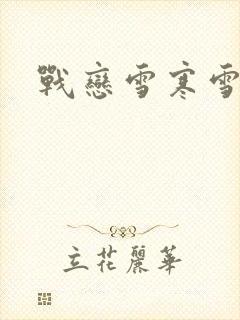 戰戀雪寒雪
立花麗華